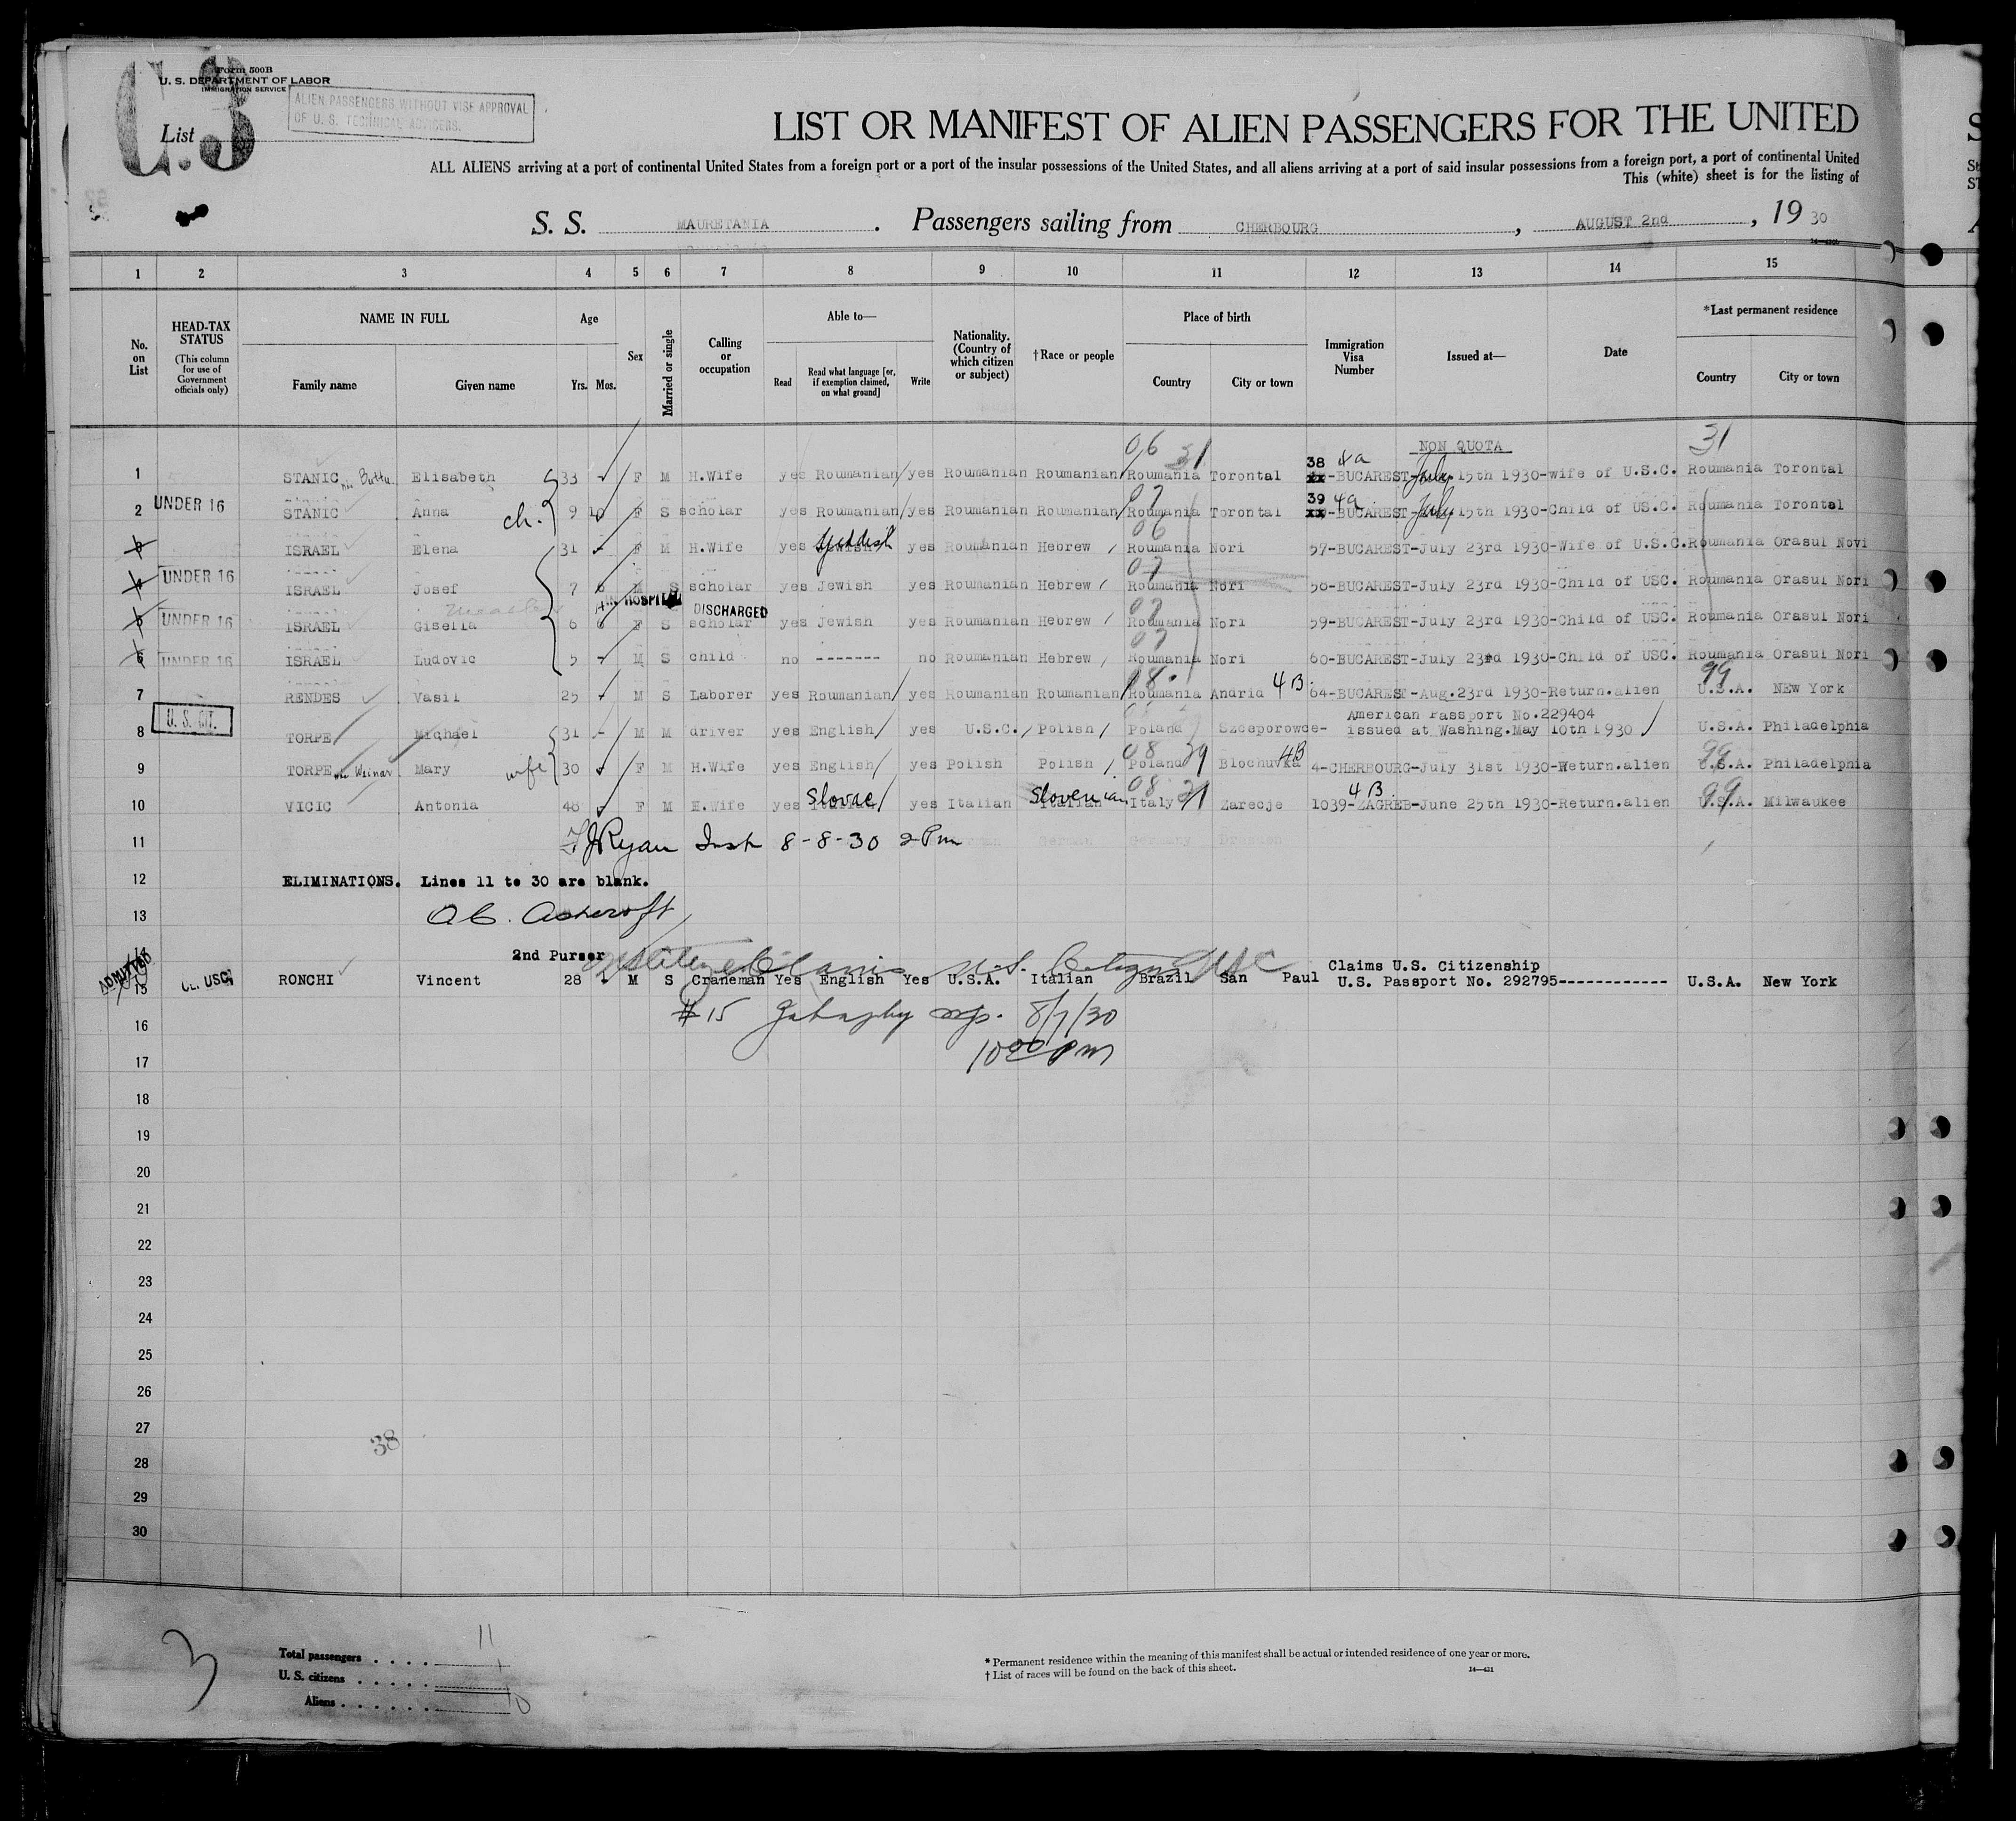 Form 500B
U. S. DEPARTMENT OF LABOR
IMMIGRATION SERVICE
C.3
List
ALIEN PASSENGERS WITHOUT VISE APPROVAL
OF U. S. TECHNICAL ADVISERS.
LIST OR MANIFEST OF ALIEN PASSENGERS FOR THE UNITED
ALL ALIENS arriving at a port of continental United States from a foreign port or a port of the insular possessions of the United States, and all aliens arriving at a port of said insular possessions from a foreign port, a port of continental United
This (white) sheet is for the listing of
S. S. MAURETANIA . Passengers sailing from CHERBOURG , AUGUST 2nd , 19 30
1 2 3 4 5 6 7 8 9 10 11 12 13 14 15
No. on List
HEAD-TAX STATUS (This column for use of Government officials only)
NAME IN FULL Family name Given name
Age Yrs. Mos.
Sex
Married or single
Calling or occupation
Able to— Read Read what language [or, if exemption claimed, on what ground] Write
Nationality. (Country of which citizen or subject)
†Race or people
Place of birth Country City or town
Immigration Visa Number
Issued at—
Date
*Last permanent residence Country City or town
06 31 NON QUOTA 31
1 STANIC Elisabeth 33 F M H.Wife yes Roumanian yes Roumanian Roumanian Roumania Torontal 38 4a -BUCAREST-July 15th 1930-wife of U.S.C. Roumania Torontal
2 UNDER 16 STANIC Anna ch. 9 10 F S scholar yes Roumanian yes Roumanian Roumanian Roumania Torontal 39 4a -BUCAREST-July 15th 1930-Child of US.C. Roumania Torontal
3 ISRAEL Elena 31 - F M H.Wife yes Yeddish yes Roumanian Hebrew Roumania Nori 57-BUCAREST-July 23rd 1930-Wife of U.S.C. Roumania Orasul Novi
4 UNDER 16 ISRAEL Josef 7 6 M S scholar yes Jewish yes Roumanian Hebrew Roumania Nori 58-BUCAREST-July 23rd 1930-Child of USC. Roumania Orasul Nori
IN HOSPITAL DISCHARGED
5 UNDER 16 ISRAEL Gisella 6 6 F S scholar yes Jewish yes Roumanian Hebrew Roumania Nori 59-BUCAREST-July 23rd 1930-Child of USC. Roumania Orasul Nori
6 UNDER 16 ISRAEL Ludovic 5 - M S child no ------- no Roumanian Hebrew Roumania Nori 60-BUCAREST-July 23rd 1930-Child of USC. Roumania Orasul Nori
7 RENDES Vasil 25 - M S Laborer yes Roumanian yes Roumanian Roumanian Roumania Andrid 4B 64-BUCAREST-Aug.23rd 1930-Return.alien 99 U.S.A. NEW York
American Passport No.229404
8 U. S. CIT. TORPE Michael 31 - M M driver yes English yes U.S.C. Polish Poland Szceporowce- issued at Washing.May 10th 1930 U.S.A. Philadelphia
9 TORPE Mary wife 30 F M H.Wife yes English yes Polish Polish Poland Blochuvka 4B 4-CHERBOURG-July 31st 1930-Return.alien 99 U.S.A. Philadelphia
10 VICIC Antonia 48 F M H.Wife yes Slovac yes Italian Slovenian Italy Zarecje 4B 1039-ZAGREB-June 25th 1930-Return.alien 99 U.S.A. Milwaukee
11 Ryan Insp 8-8-30 2 Pm
12 ELIMINATIONS. Lines 11 to 30 are blank.
13 Ashcroft
14 2nd Purser
Claims U.S. Citizenship
15 ADMITTED CL. USC. RONCHI Vincent 28 - M S Craneman Yes English Yes U.S.A. Italian Brazil San Paul U.S. Passport No. 292795------------ U.S.A. New York
16 #15 8/7/30
17 10 00 PM
18
19
20
21
22
23
24
25
26
27
38
28
29
30
3
Total passengers . . . . 11
U. S. citizens . . . . . 1
Aliens . . . . . . 10
* Permanent residence within the meaning of this manifest shall be actual or intended residence of one year or more.
† List of races will be found on the back of this sheet.
14—421